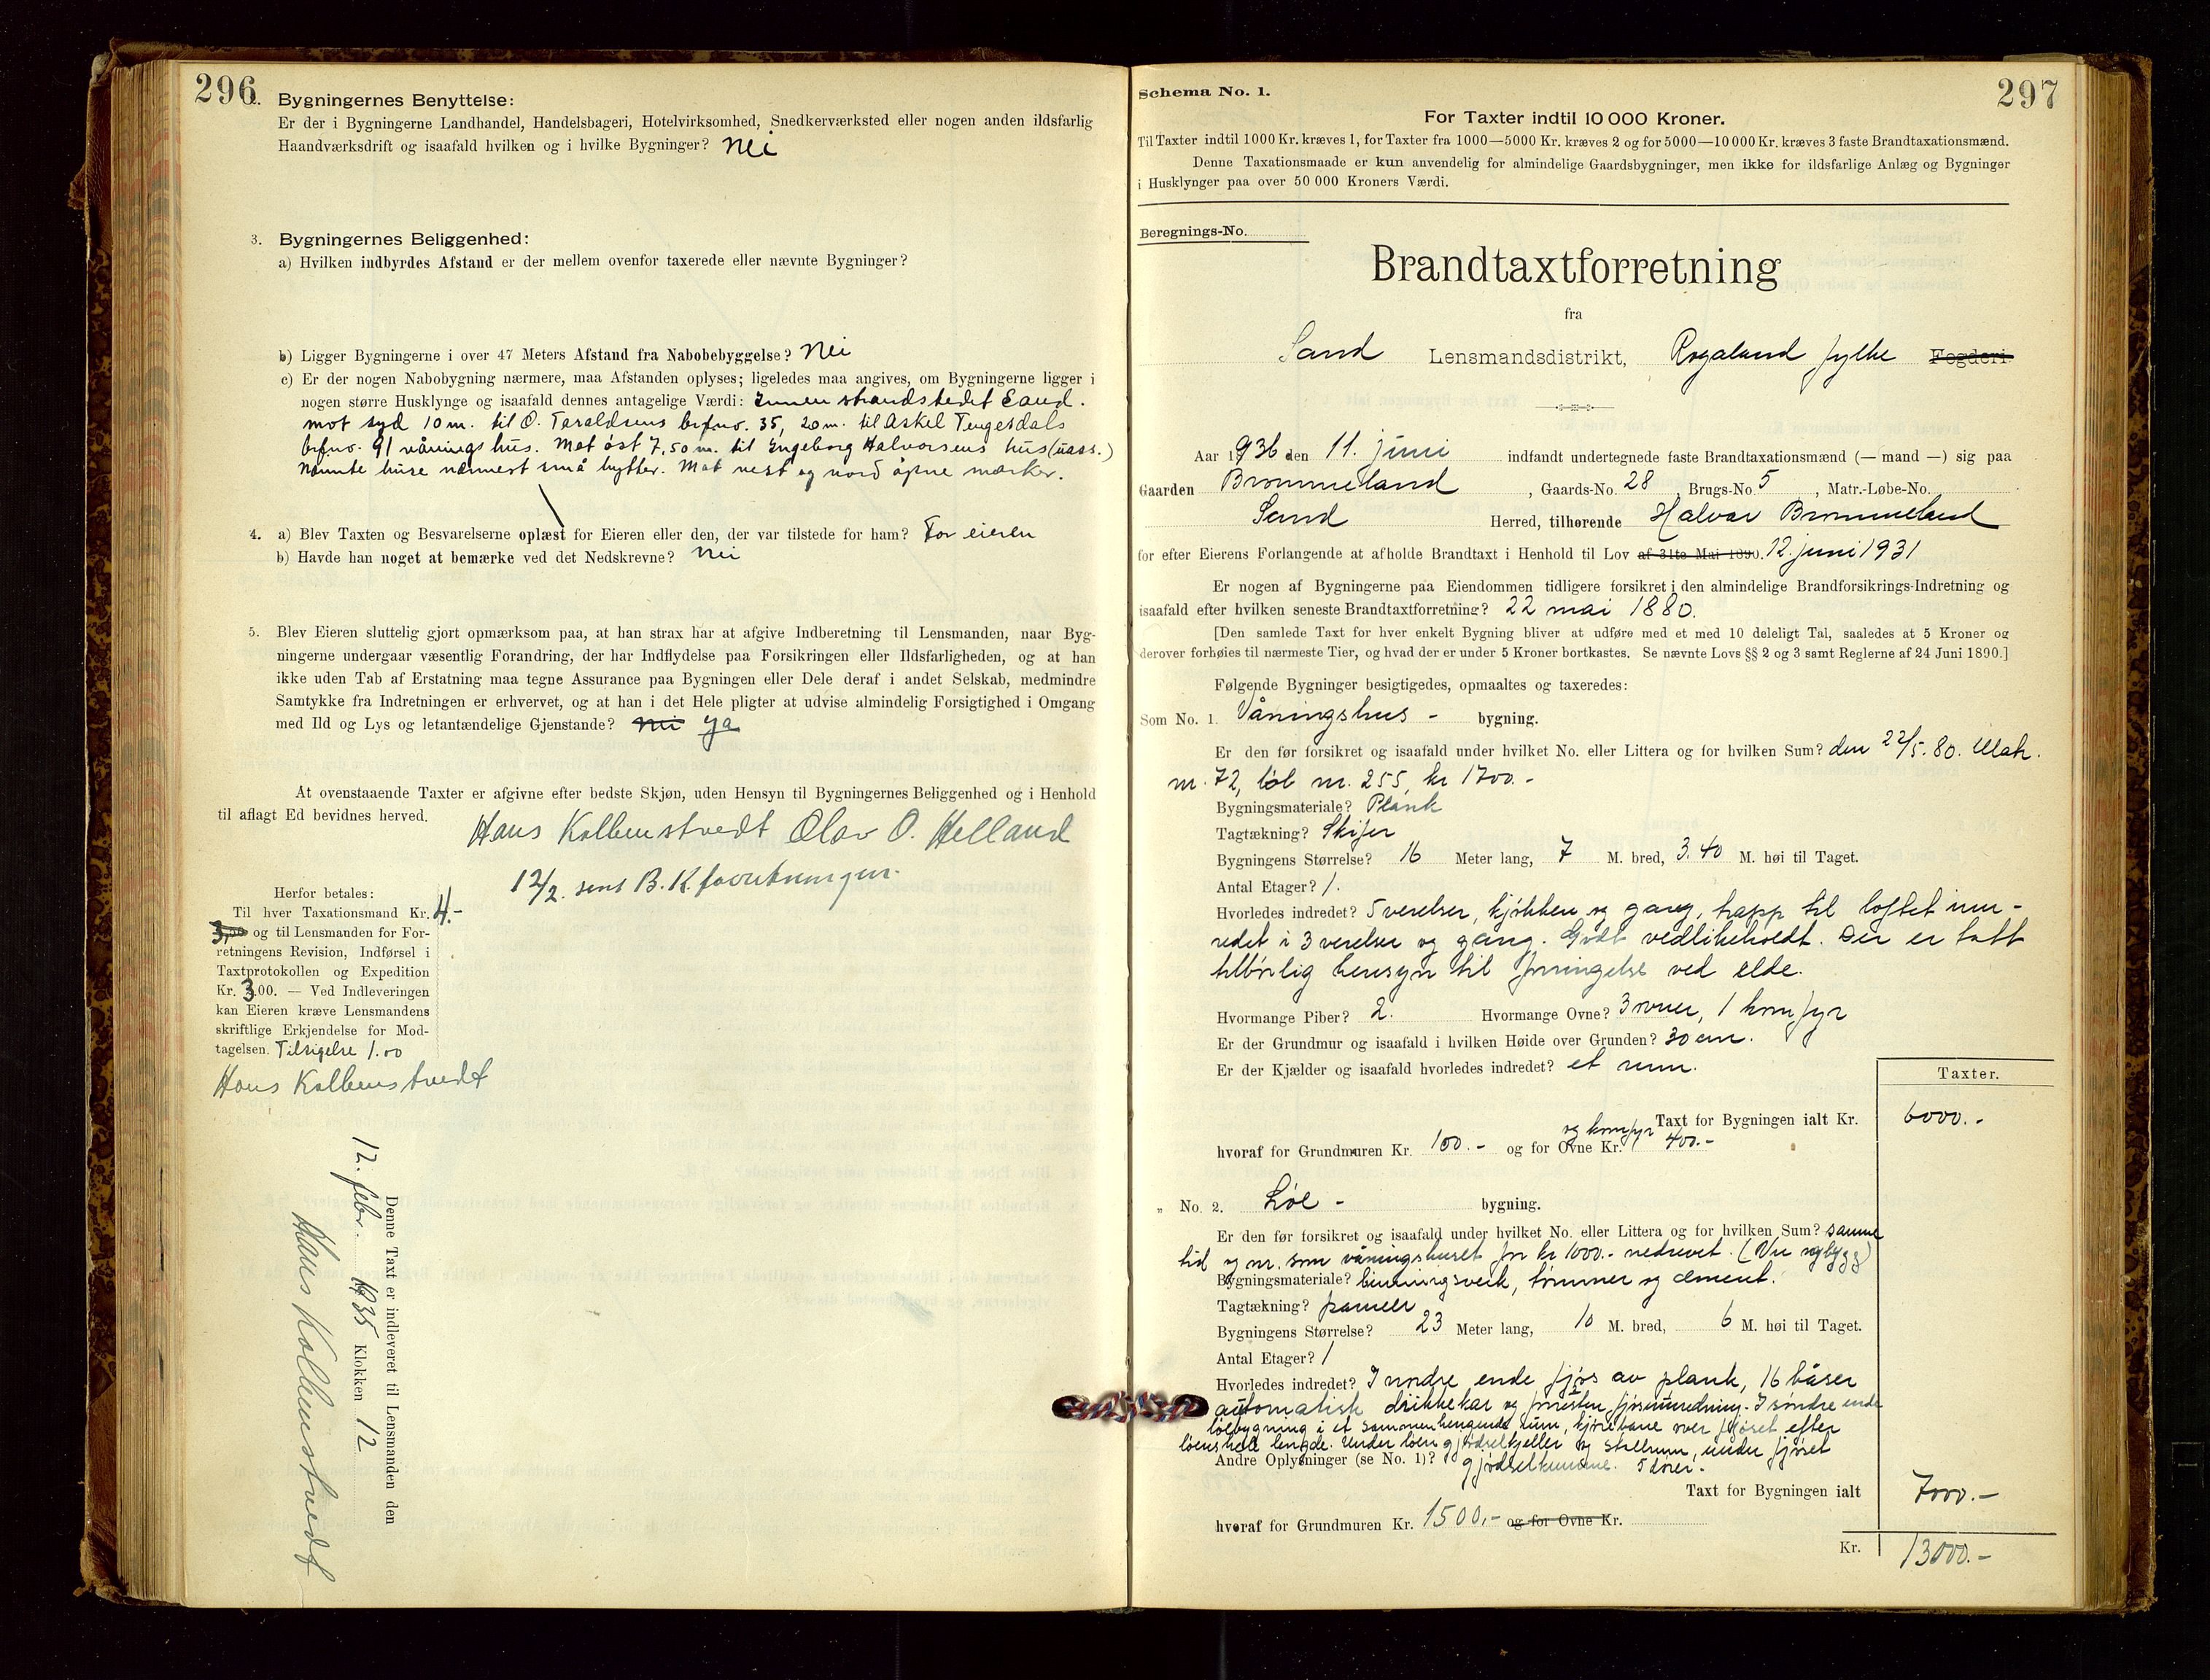 296
2. Bygningernes Benyttelse:
Er der i Bygningerne Landhandel, Handelsbageri, Hotelvirksomhed, Snedkerværksted eller nogen anden ildsfarlig
Haandværksdrift og isaafald hvilken og i hvilke Bygninger? Nei
3. Bygningernes Beliggenhed:
a) Hvilken indbyrdes Afstand er der mellem ovenfor taxerede eller nævnte Bygninger?
b) Ligger Bygningerne i over 47 Meters Afstand fra Nabobebyggelse? Nei
c) Er der nogen Nabobygning nærmere, maa Afstanden oplyses; ligeledes maa angives, om Bygningerne ligger i
nogen større Husklynge og isaafald dennes antagelige Værdi: Innen strandstedet Sand.
mot syd 10 m. til O. Taraldsens brfno. 35, 20 m. til Askel Tengesdals
brfno. 91 våningshus. Mot öst 7,50 m. til Ingeborg Halvorsens hus (uass.)
Nevnte huse nærmest små hytter. Mot vest og nord åpne marker.
4. a) Blev Taxten og Besvarelserne oplæst for Eieren eller den, der var tilstede for ham? For eieren
b) Havde han noget at bemærke ved det Nedskrevne? Nei
5. Blev Eieren sluttelig gjort opmærksom paa, at han strax har at afgive Indberetning til Lensmanden, naar Byg-
ningerne undergaar væsentlig Forandring, der har Indflydelse paa Forsikringen eller Ildsfarligheden, og at han
ikke uden Tab af Erstatning maa tegne Assurance paa Bygningen eller Dele deraf i andet Selskab, medmindre
Samtykke fra Indretningen er erhvervet, og at han i det Hele pligter at udvise almindelig Forsigtighed i Omgang
med Ild og Lys og letantændelige Gjenstande? Nei ja
At ovenstaaende Taxter er afgivne efter bedste Skjøn, uden Hensyn til Bygningernes Beliggenhed og i Henhold
til aflagt Ed bevidnes herved.
Hans Kolbenstvedt Olav O. Helland
12/2. sent B. K. forretningen.
Herfor betales:
Til hver Taxationsmand Kr. 4.-
3,00 og til Lensmanden for For-
retningens Revision, Indførsel i
Taxtprotokollen og Expedition
Kr. 3.00. — Ved Indleveringen
kan Eieren kræve Lensmandens
skriftlige Erkjendelse for Mod-
tagelsen. Tilsigelse 1.00
Hans Kolbenstvedt
Denne Taxt er indleveret til Lensmanden den
12. febr. 1935 Klokken 12
Hans Kolbenstvedt
297
Schema No. 1.
For Taxter indtil 10 000 Kroner.
Til Taxter indtil 1000 Kr. kræves 1, for Taxter fra 1000—5000 Kr. kræves 2 og for 5000—10 000 Kr. kræves 3 faste Brandtaxationsmænd.
Denne Taxationsmaade er kun anvendelig for almindelige Gaardsbygninger, men ikke for ildsfarlige Anlæg og Bygninger
i Husklynger paa over 50 000 Kroners Værdi.
Beregnings-No.
Brandtaxtforretning
fra
Sand Lensmandsdistrikt, Rogaland fylke Fogderi
Aar 1936 den 11. juni indfandt undertegnede faste Brandtaxationsmænd (— mand —) sig paa
Gaarden Brommeland, Gaards-No. 28 Brugs-No. 5, Matr.-Løbe-No.
Sand Herred, tilhørende Halvar Brommeland
for efter Eierens Forlangende at afholde Brandtaxt i Henhold til Lov af 31te Mai 1890. 12. juni 1931
Er nogen af Bygningerne paa Eiendommen tidligere forsikret i den almindelige Brandforsikrings-Indretning og
isaafald efter hvilken seneste Brandtaxtforretning? 22 mai 1880.
[Den samlede Taxt for hver enkelt Bygning bliver at udføre med et med 10 deleligt Tal, saaledes at 5 Kroner og
derover forhøies til nærmeste Tier, og hvad der er under 5 Kroner bortkastes. Se nævnte Lovs §§ 2 og 3 samt Reglerne af 24 Juni 1890.]
Følgende Bygninger besigtigedes, opmaaltes og taxeredes:
Som No. 1. Våningshus - bygning.
Er den før forsikret og isaafald under hvilket No. eller Littera og for hvilken Sum? den 22/5. 80. Matr.
nr. 72, löb nr. 255, kr 1700.-
Bygningsmateriale? Plank
Tagtækning? Skifer
Bygningens Størrelse? 16 Meter lang, 7 M. bred, 3.40 M. høi til Taget.
Antal Etager? 1.
Hvorledes indredet? 5 verelser, kjökken og gang, trapp til loftet inn-
redet i 3 verelser og gang. Godt vedlikeholdt. Der er tatt
tilbörlig hensyn til forringelse ved elde.
Hvormange Piber? 2. Hvormange Ovne? 3 ovner, 1 komfyr
Er der Grundmur og isaafald i hvilken Høide over Grunden? 30 cm.
Er der Kjælder og isaafald hvorledes indredet? et rum.
Taxter.
Taxt for Bygningen ialt Kr. 6000.-
og komfyr
hvoraf for Grundmuren Kr. 100.- og for Ovne Kr. 400.-
" No. 2. Löe - bygning.
Er den før forsikret og isaafald under hvilket No. eller Littera og for hvilken Sum? samme
tid og nr. som våningshuset for kr 1000.- nedrevet. (Nu nybygg)
Bygningsmateriale? binningsverk, tömmer og cement.
Tagtækning? panner
Bygningens Størrelse? 23 Meter lang, 10 M. bred, 6 M. høi til Taget.
Antal Etager? 1
Hvorledes indredet? I nordre ende fjös av plank, 16 båser
automatisk drikkekar og forresten fjösinnredning. I söndre ende
löebygning i et sammenhengende rum, kjörebane over fjöset efter
löens hele lengde. Under löen gjödselkjeller og stellrum, under fjöset
Andre Oplysninger (se No. 1)? gjödselkumme. 5 dörer.
Taxt for Bygningen ialt 7000.-
hvoraf for Grundmuren Kr. 1500,- og for Ovne Kr.
Kr. 13000.-